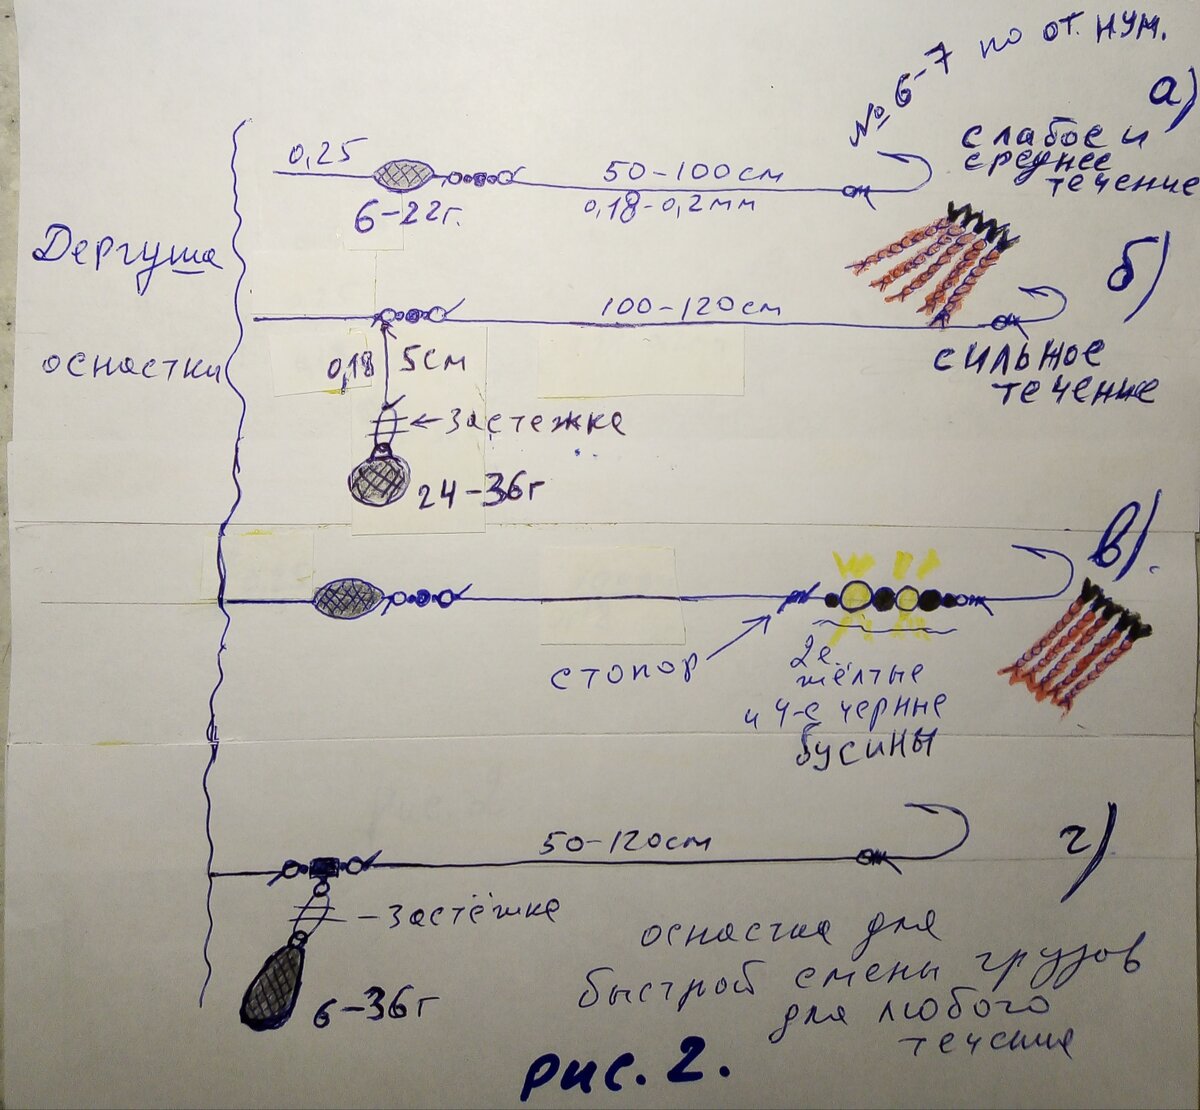 № 6-7 по от. нум.
а)
слабое и
среднее
течение
0,25
50-100см
0,18-0,2мм
6-22г.
Дергуша
оснастки
б)
100-120см
0,18
5см
сильное
течение
застежке
24-36г
в).
стопор
2е
жёлтые
и 4-е черные
бусины
г)
50-120см
-застёжке
6-36г
оснастка для
быстрой смены грузов
для любого
течения
рис. 2.